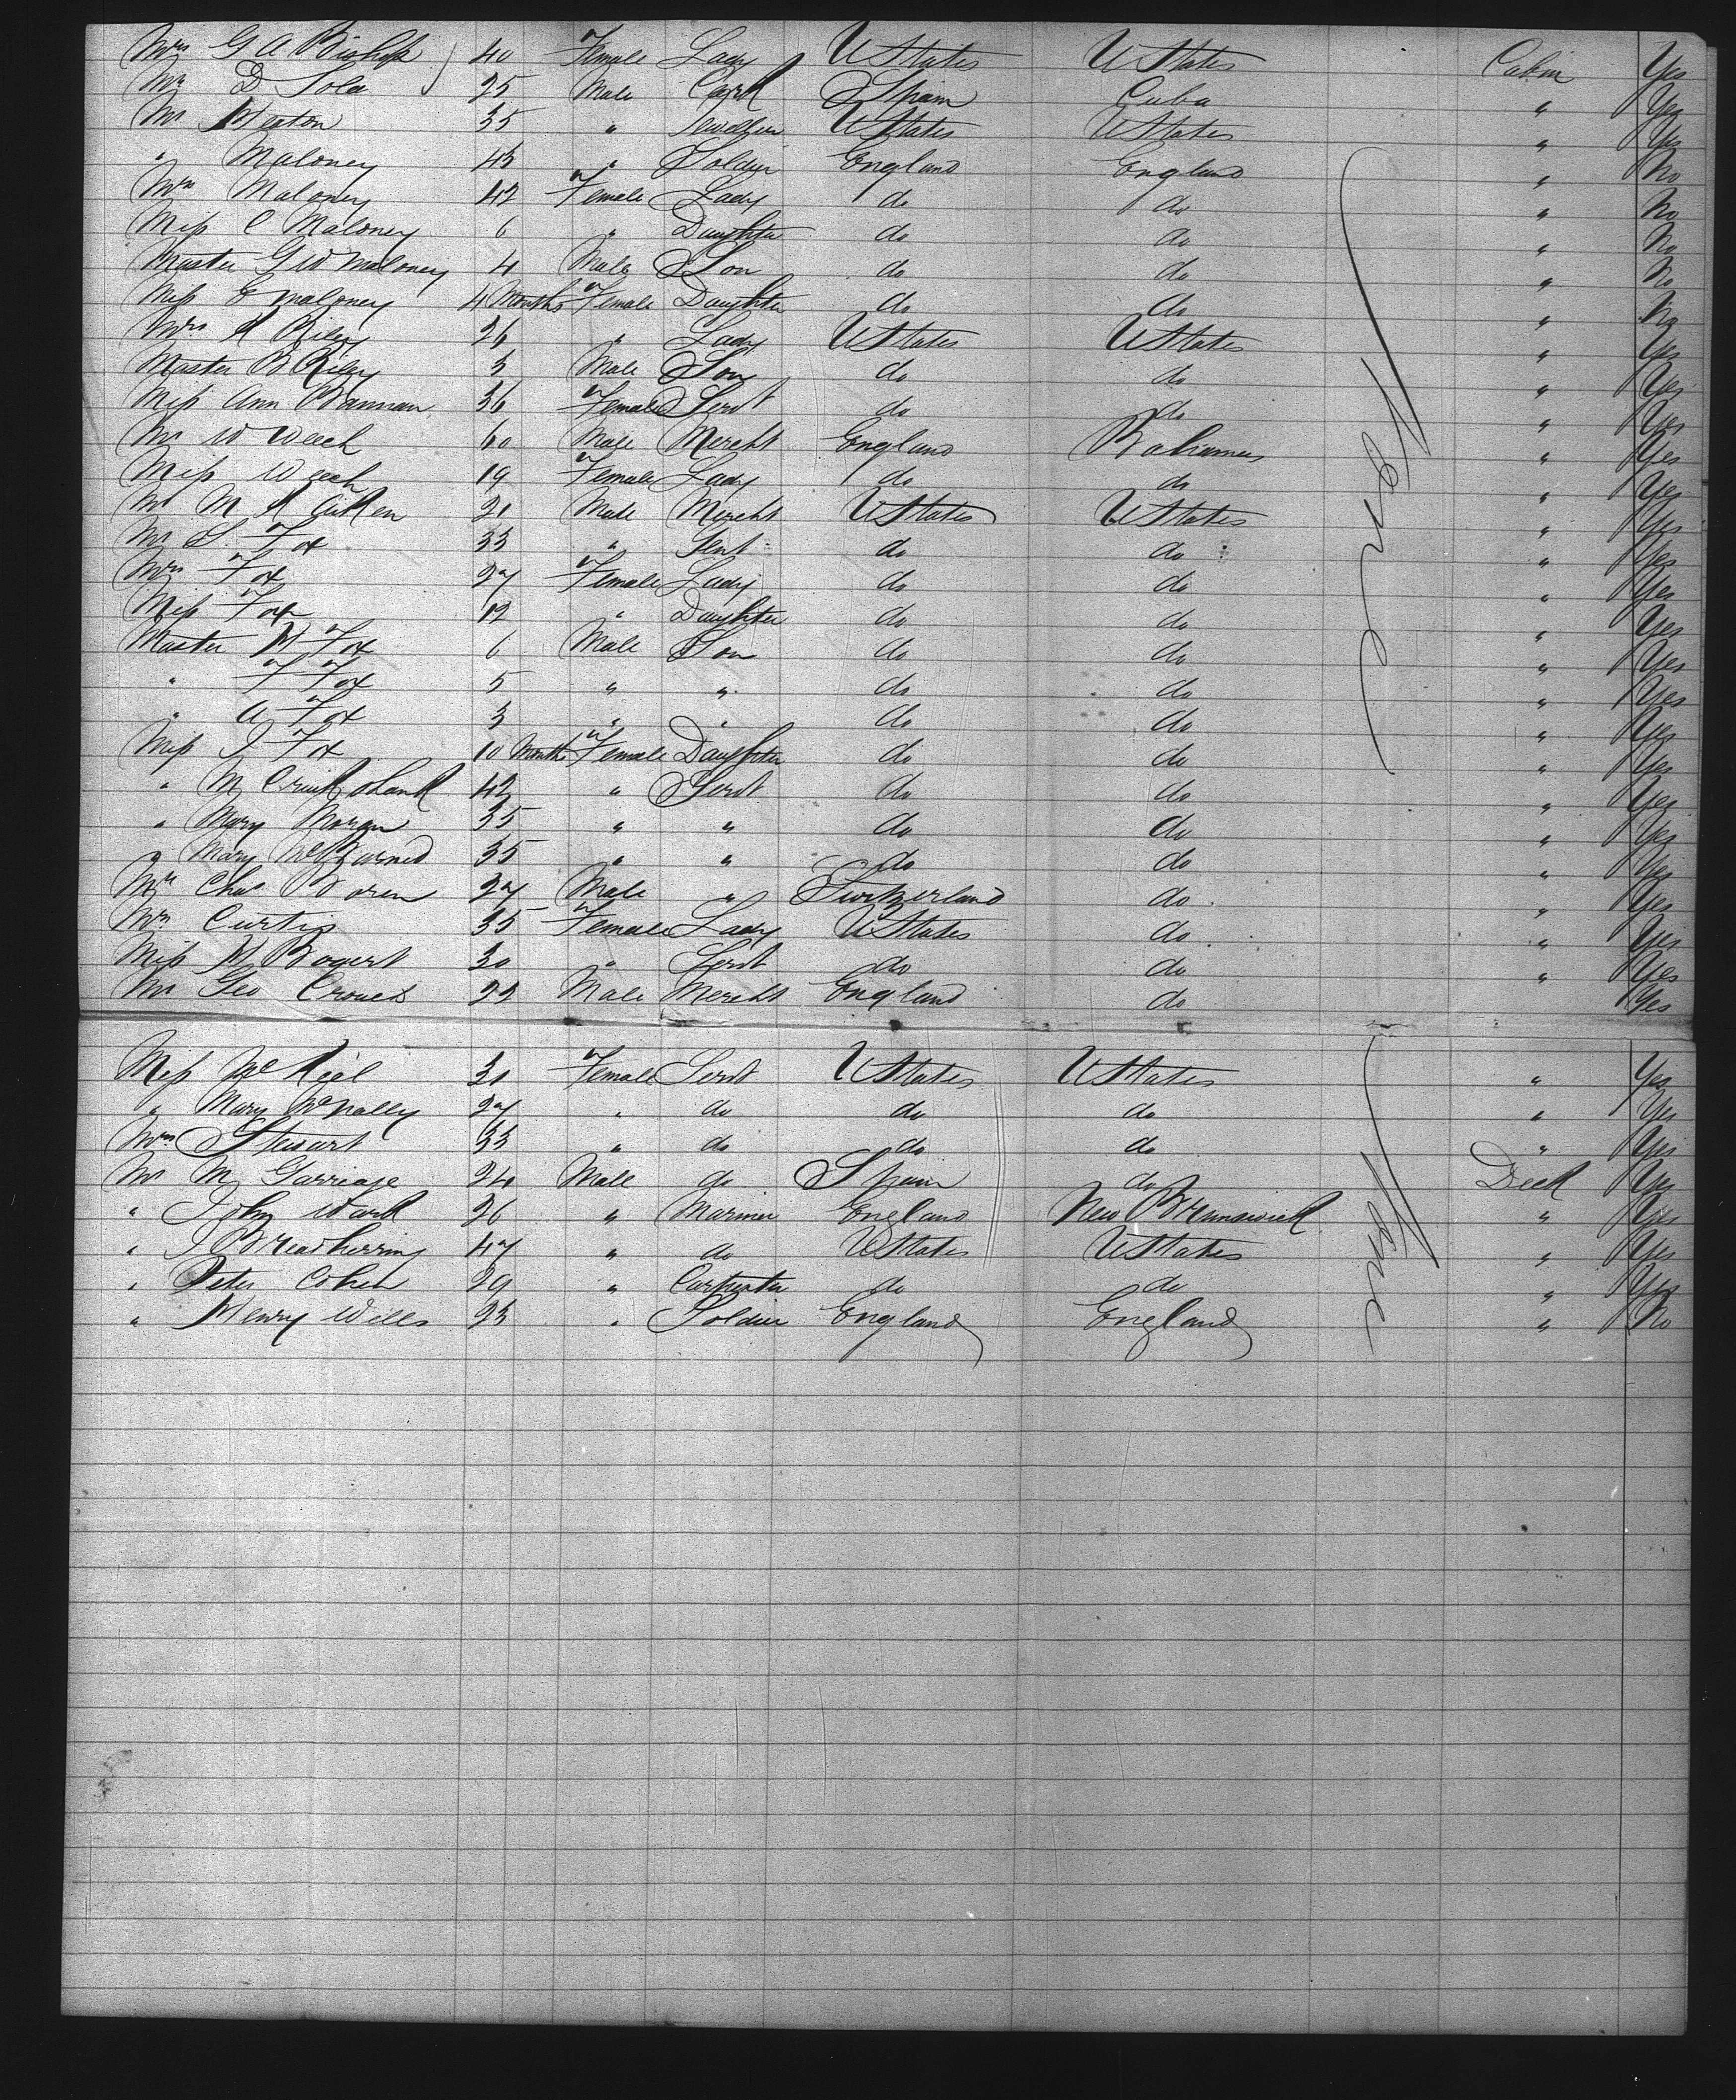 Mrs G A Bishop 40 Female Lady U States U States Cabin Yes
Mr D Sola 25 Male Spain Cuba " Yes
Mr Heaton 35 " Jeweller U States U States " Yes
" Maloney 43 " Soldier England England " No
Mrs Maloney 42 Female Lady do do " No
Miss C Maloney 6 " Daughter do do " No
Master G W Maloney 4 Male Son do do " No
Miss E Maloney 4 Months Female Daughter do do " No
Mrs A Riley 26 " Lady U States U States " Yes
Master B Riley 3 Male Son do do " Yes
Miss Ann Brannan 36 Female Servt do do " Yes
Mr W Weech 60 Male Mercht England Bahamas " Yes
Miss Weech 19 Female Lady do do " Yes
Mr M A Aitken 21 Male Mercht U States U States " Yes
Mr S Fox 33 " Gent do do " Yes
Mrs Fox 27 Female Lady do do " Yes
Miss Fox 12 " Daughter do do " Yes
Master H Fox 6 Male Son do do " Yes
" F Fox 5 " " do do " Yes
" A Fox 3 " " do do " Yes
Miss J Fox 10 Months Female Daughter do do " Yes
" M Cruikshank 42 " Servt do do " Yes
" Mary Moran 35 " " do do " Yes
" Mary 35 " " do do " Yes
Mr Chas Boren 27 Male " Switzerland do " Yes
Mrs Curtis 35 Female Lady U States do " Yes
Miss H Bogert 30 " Servt do do " Yes
Mr Geo Crouch 22 Male Mercht England do Yes
None
Miss 30 Female Servt U States U States " Yes
" Mary McNally 27 " do do do " Yes
Mrs Stewart 33 " do do do " Yes
Mr M Garriage 24 Male do Spain do Deck Yes
" John Ward 26 " Mariner England New Brunswick " Yes
" J Breadherring 47 " do U States U States " Yes
" Peter Cohen 29 " Carpenter do do " Yes
" Henry Wills 23 " Soldier England England " No
None